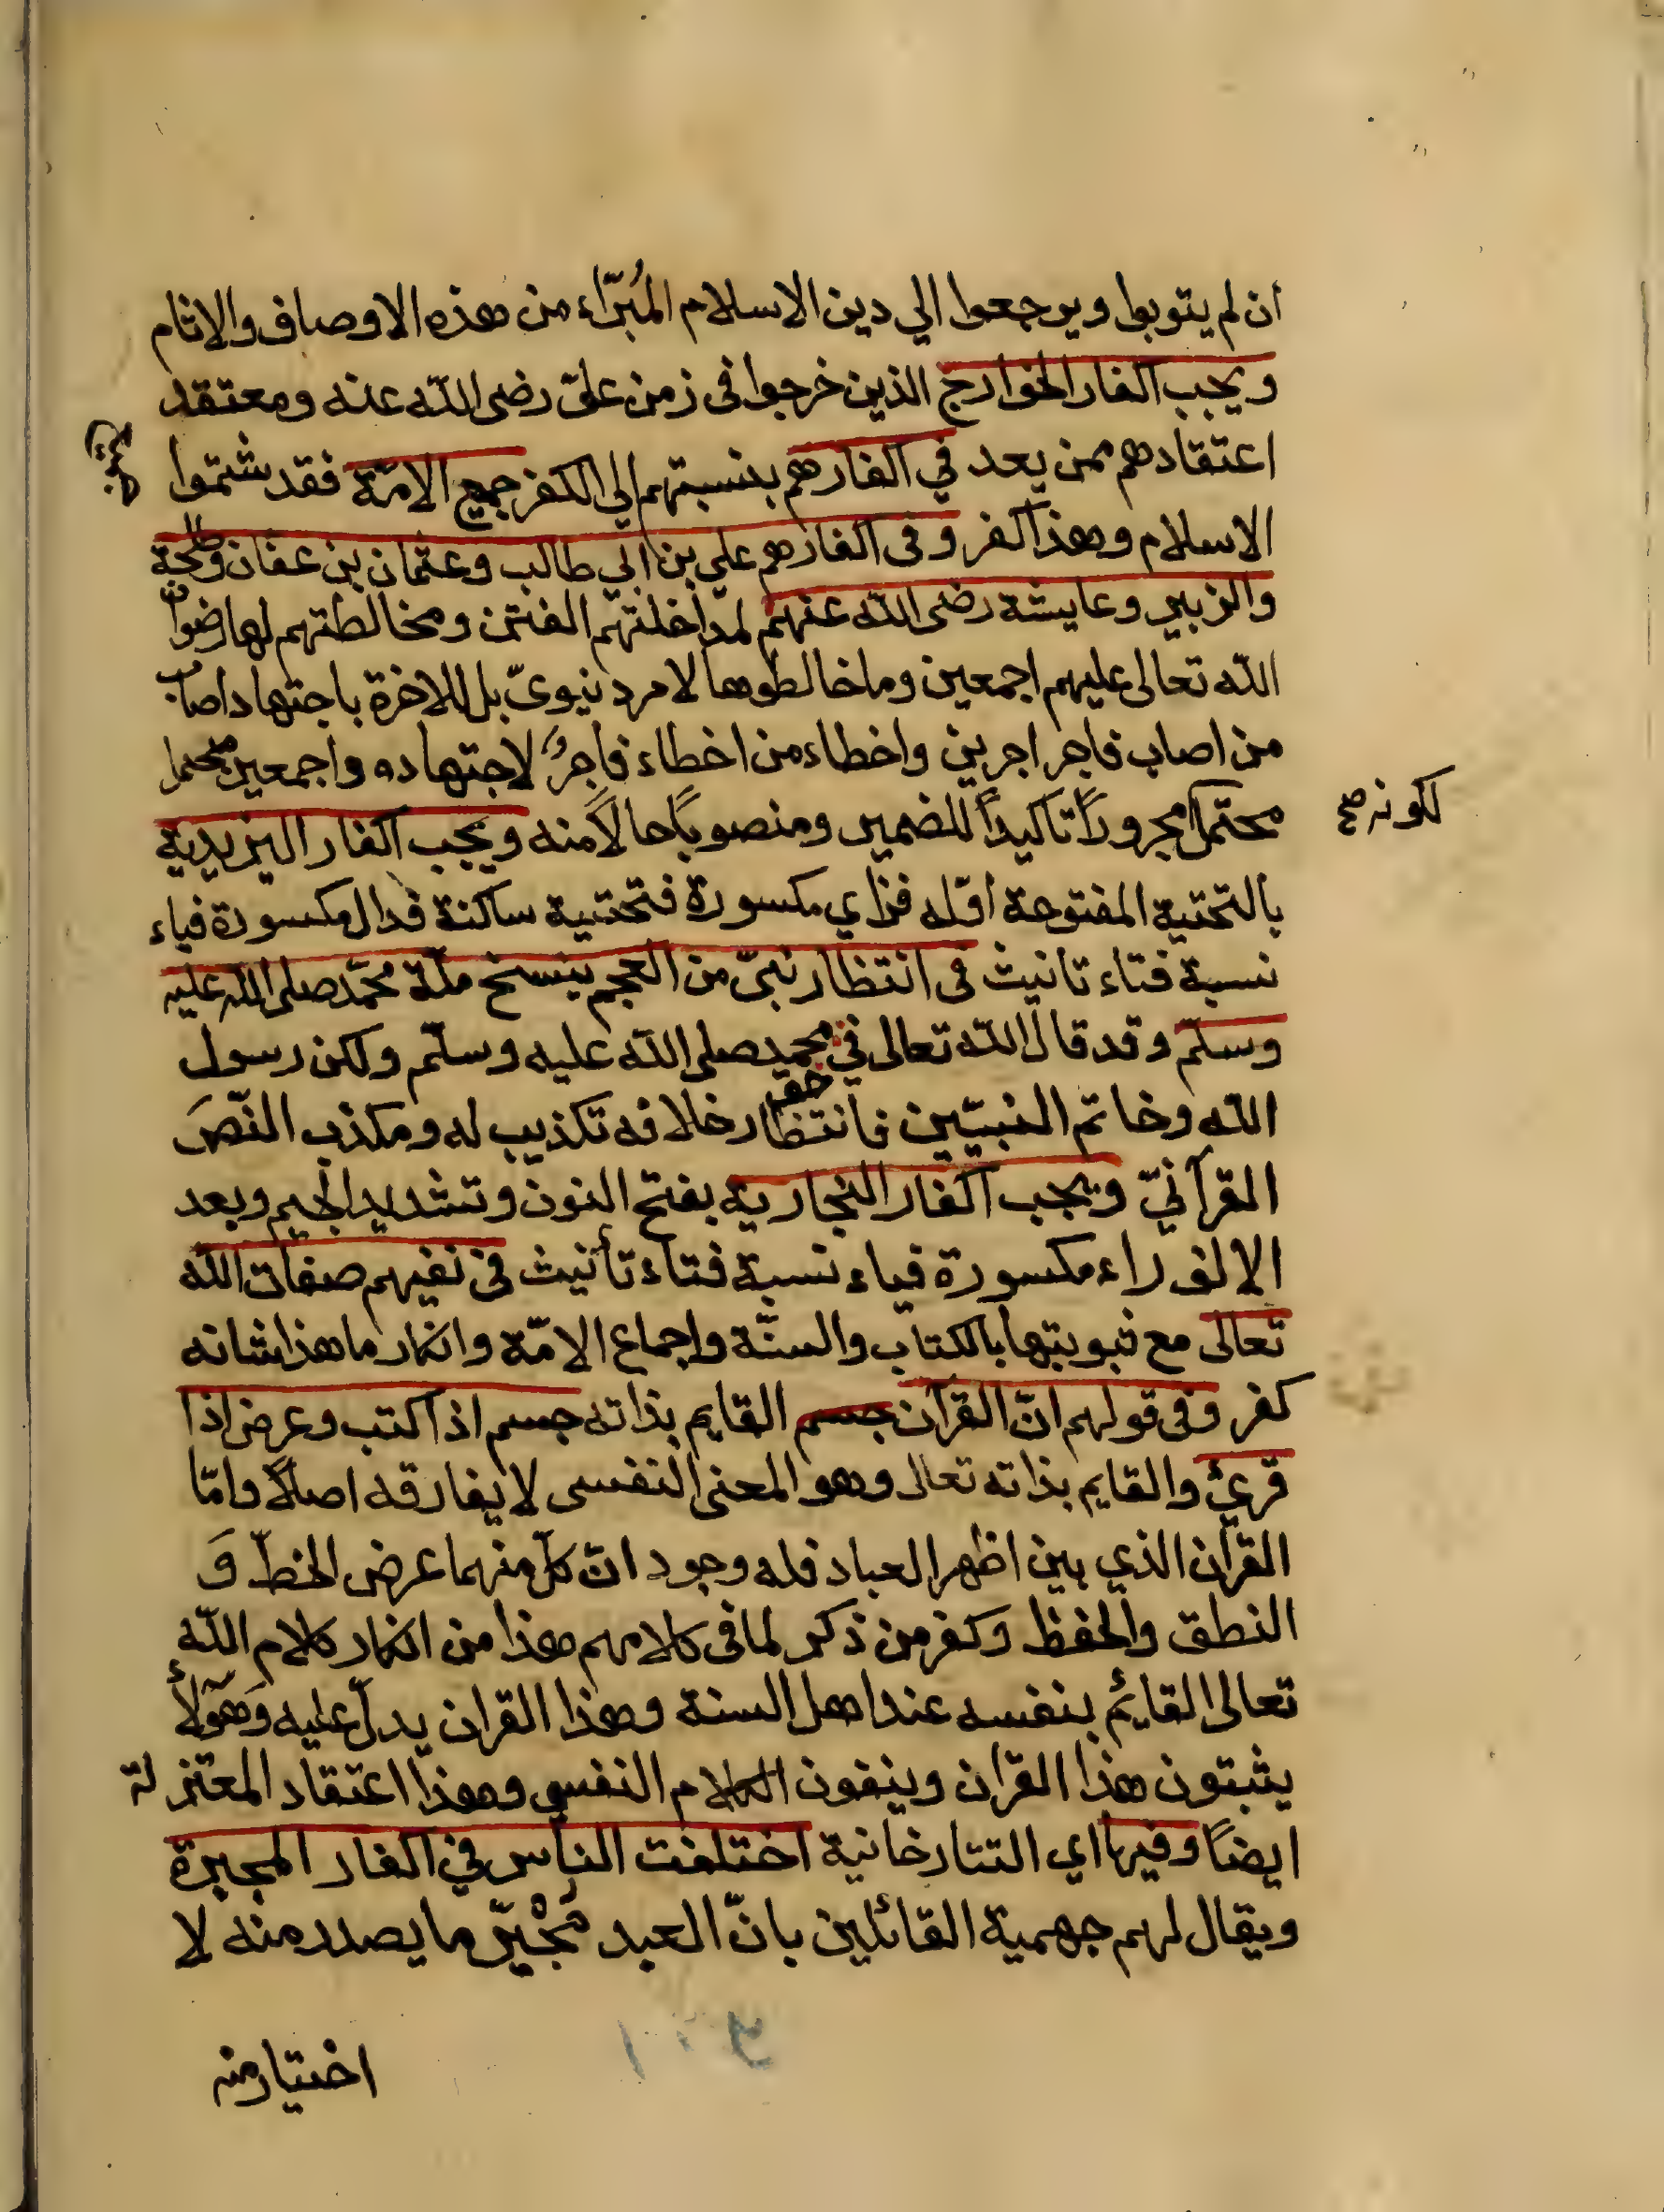 ان لم يتوبوا ويرجعوا الي دين الاسلام المُبرّاء من هذه الاوصاف والاثام
ويجب اكفار الخوارج الذين خرجوا فى زمن علىّ رضى اللّه عنه ومعتقد
اعتقادهم ممن يعد في اكفارهم بنسبتهم الي الكفر جميع الامّة فقد شتموا
الاسلام وهذا كفر وفى اكفارهم علي بن ابي طالب وعثمان بن عفان وطلحة
والزبير وعايشة رضى اللّه عنهم لمداخلتهم الفتن ومخالطتهم لها رضوان
اللّه تعالى عليهم اجمعين وما خالطوها لامر دنيوىّ بل للاخرة باجتهاد اصاب
من اصاب فاجر اجرين واخطاء من اخطاء فاجرٌ لاجتهاده واجمعين
محتمل مجروراً تاكيداً للضمير ومنصوباً حالاً منه ويجب اكفار اليزيدية
لكونه صح
بالتحتية المفتوحة اوّله فزاي مكسورة فتحتية ساكنة فدال مكسورة فياء
نسبة فتاء تانيث فى انتظار نبىّ من العجم ينسخ ملّة محمّد صلى اللّه عليه
وسلّم وقد قال اللّه تعالى في حق محمد صلى اللّه عليه وسلّم ولكن رسول
اللّه وخاتم النبيّين فانتظار خلافه تكذيب له ومكذب النّصّ
القرآنيّ ويجب اكفار النجارية بفتح النون وتشديد الجيم وبعد
الالف راء مكسورة فياء نسبة فتاء تأنيث فى نفيهم صفات اللّه
تعالى مع ثبوبتها بالكتاب والسنّة واجماع الامّة وانكار ما هذا شانه
كفر وفى قولهم انّ القرآن جسم القايم بذاته جسم اذا كتب وعرض اذا
قرئ والقايم بذاته تعالى وهو المعنى النفسى لا يفارقه اصلاً وامّا
القرآن الذي بين اظهر العباد فله وجودات كلّ منهما عرض الخطّ وَ
النطق والحفظ وكفر من ذكر لما فى كلامهم هذا من انكار كلام اللّه
تعالى القائم بنفسه عند اهل السنة وهذا القران يدلّ عليه وَهؤلاء
يثبتون هذا القرآن وينفون الكلام النفسي وهذا اعتقاد المعتزلة
ايضاً وفيها اي التتارخانية اختلفت الناس في اكفار المجبرة
ويقال لهم جهمية القائلين بانّ العبد مُجْبَرٌ ما يصدر منه لا
اختيار منه